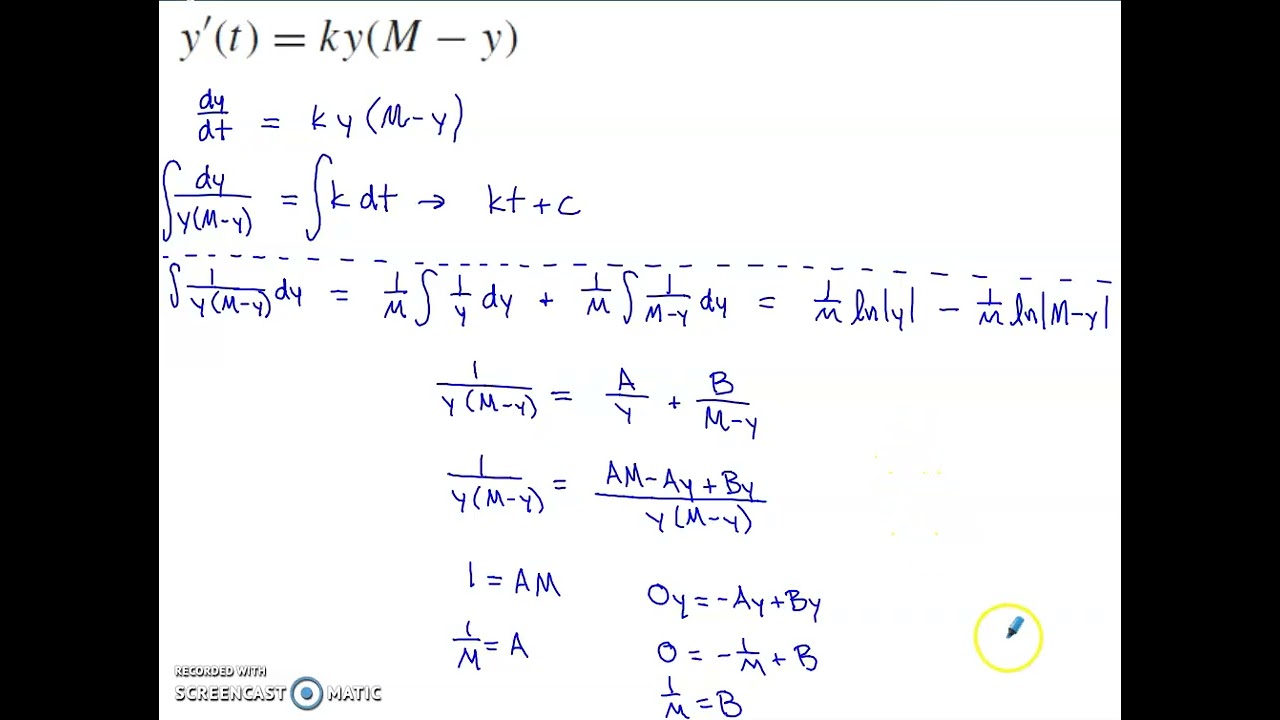 y′(t) = ky(M − y)
dy/dt = ky(M−y)
∫ dy/y(M−y) = ∫ k dt → kt + c
∫ 1/y(M−y) dy = 1/M ∫ 1/y dy + 1/M ∫ 1/M−y dy = 1/M ln|y| − 1/M ln|M−y|
1/y(M−y) = A/y + B/M−y
1/y(M−y) = AM−Ay+By/y(M−y)
1 = AM
0y = −Ay+By
1/M = A
0 = −1/M + B
1/M = B
RECORDED WITH
SCREENCAST MATIC